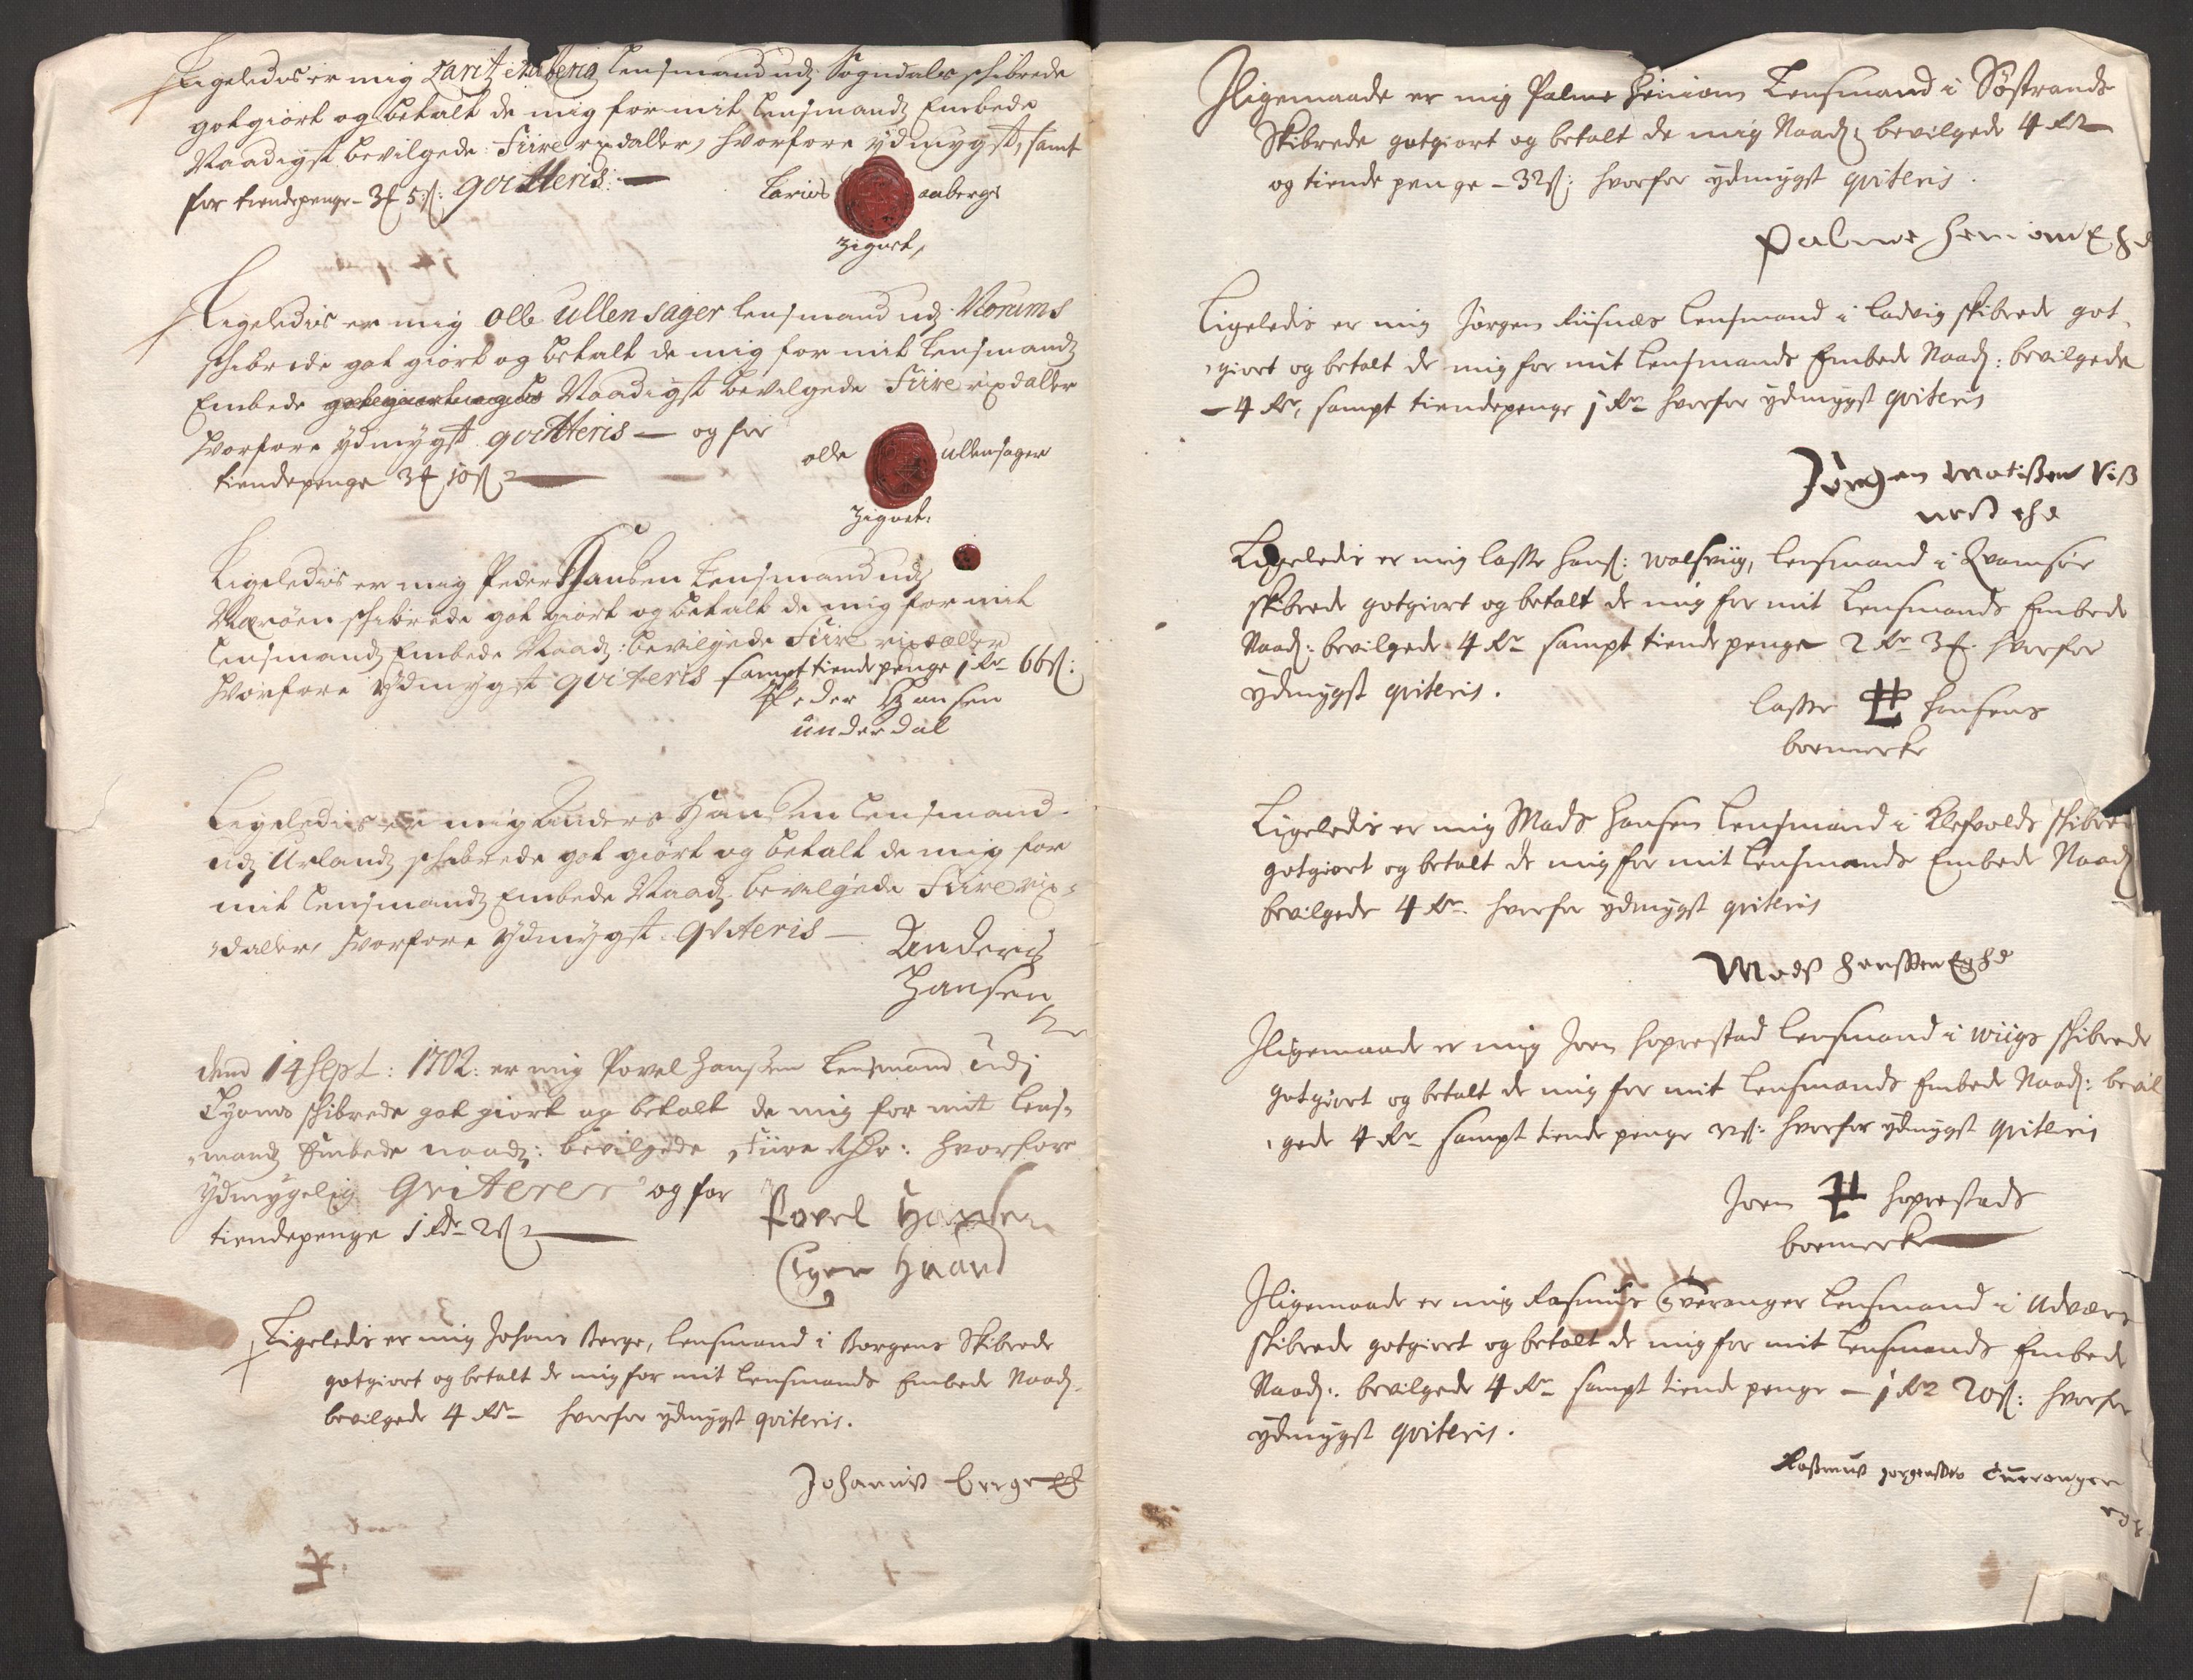 Ligeledis er mig Laritz Aaberg Lensmand udj Sogndals schibrede
gotgiort og betalt de mig for mit Lensmandz Embede
Naadigst bevilgede Fiire rixdaller, hvorfore ydmygst, samt
for tiendepenge - 3 5 ß: qvitteris. —
Larius aabergs
Zignet,
Ligeledis er mig olle Ullensager lensmand udj Norums
schibrede got giort og betalt de mig for mit Lensmandz
Embede Naadigst bevilgede Fiire rixdaller
hvorfore ydmygst qvitteris — og for
tiendepenge 3 10 ß
olle ullensager
Zignet.
Ligeledis er mig Peder Hansen Lensmand udj
Nærøen schibrede got giort og betalt de mig for mit
Lensmandz Embede Naadz: bevilgede Fiire rixdaller
hvorfore ydmygst qviteris sampt tiende penge 1 Rdr 66 ß:
Peder Hansen
underdal
Ligeledis er mig Anders Hansen Lensmand
udj Urlandz schibrede got giort og betalt de mig for
mit Lensmandz Embede Naadz bevilgede Fiire rix-
daller, hvorfore ydmygst qviteris —
Anders
Hansen
dend 14 Sept: 1702: er mig Povel Hansen Lensmand udj
schibrede got giort og betalt de mig for mit lens-
mandz Embede naadz: bevilgede Fiire Rdr: hvorfore
ydmygelig qviterer og for
tiendepenge 1 Rdr 2 ß
Povel Hansen
Egen Haand
Ligeledis er mig Johans Berge, lensmand i Borgens Skibrede
gotgiort og betalt de mig for mit Lensmands Embede Naadz.
bevilgede 4 Rdr — hvorfor ydmygst qviteris.
Johanis Berge
Iligemaade er mig Palme Heniom Lensmand i Søstrands
Skibrede gotgiort og betalt de mig Naadz: bevilgede 4 Rdr
og tiende penge - 32 ß: hvorfor ydmygst qviteris.
Palme Heniom E H
Ligeledis er mig Jørgen Riisnæs lensmand i Ladvig skibrede got-
giort og betalt de mig for mit Lensmands Embede Naadz: bevilgede
— 4 Rdr, sampt tiendepenge 1 Rdr hvorfor ydmygst qviteris
Jørgen Matißen Riß
neß ehd
Ligeledis er mig Lasse Hans: Wolsviig, lensmand i Qvamsøe
skibrede gotgiort og betalt de mig for mit Lensmands Embede
Naadz: bevilgede 4 Rdr sampt tiende penge 2 Rdr 3 hvorfor
ydmygst qviteris.
Lasse Hansens
boemercke
Ligeledis er mig Mads Hansen Lensmand i Klefvolds schibrede
gotgiort og betalt de mig for mit Lensmands Embede Naadz
bevilgede 4 Rdr. hvorfor ydmygst qviteris
Madß Hanssen Eghd
Iligemaade er mig Joen Hoprestad lensmand i Wiigs schibrede
gotgiort og betalt de mig for mit Lensmands Embede Naadz: bevil
gede 4 Rdr sampt tiende penge ß: hvorfor ydmygst qviteris
Joen Hoprestads
boemercke
Iligemaade er mig Rasmus Tveranger Lensmand i Udvær
skibrede gotgiort og betalt de mig for mit Lensmands Embede
Naadz: bevilgede 4 Rdr sampt tiende penge — 1 Rdr 20 ß: hvorfor
ydmygst qviteris.
Raßmus Jørgenssen Tueranger